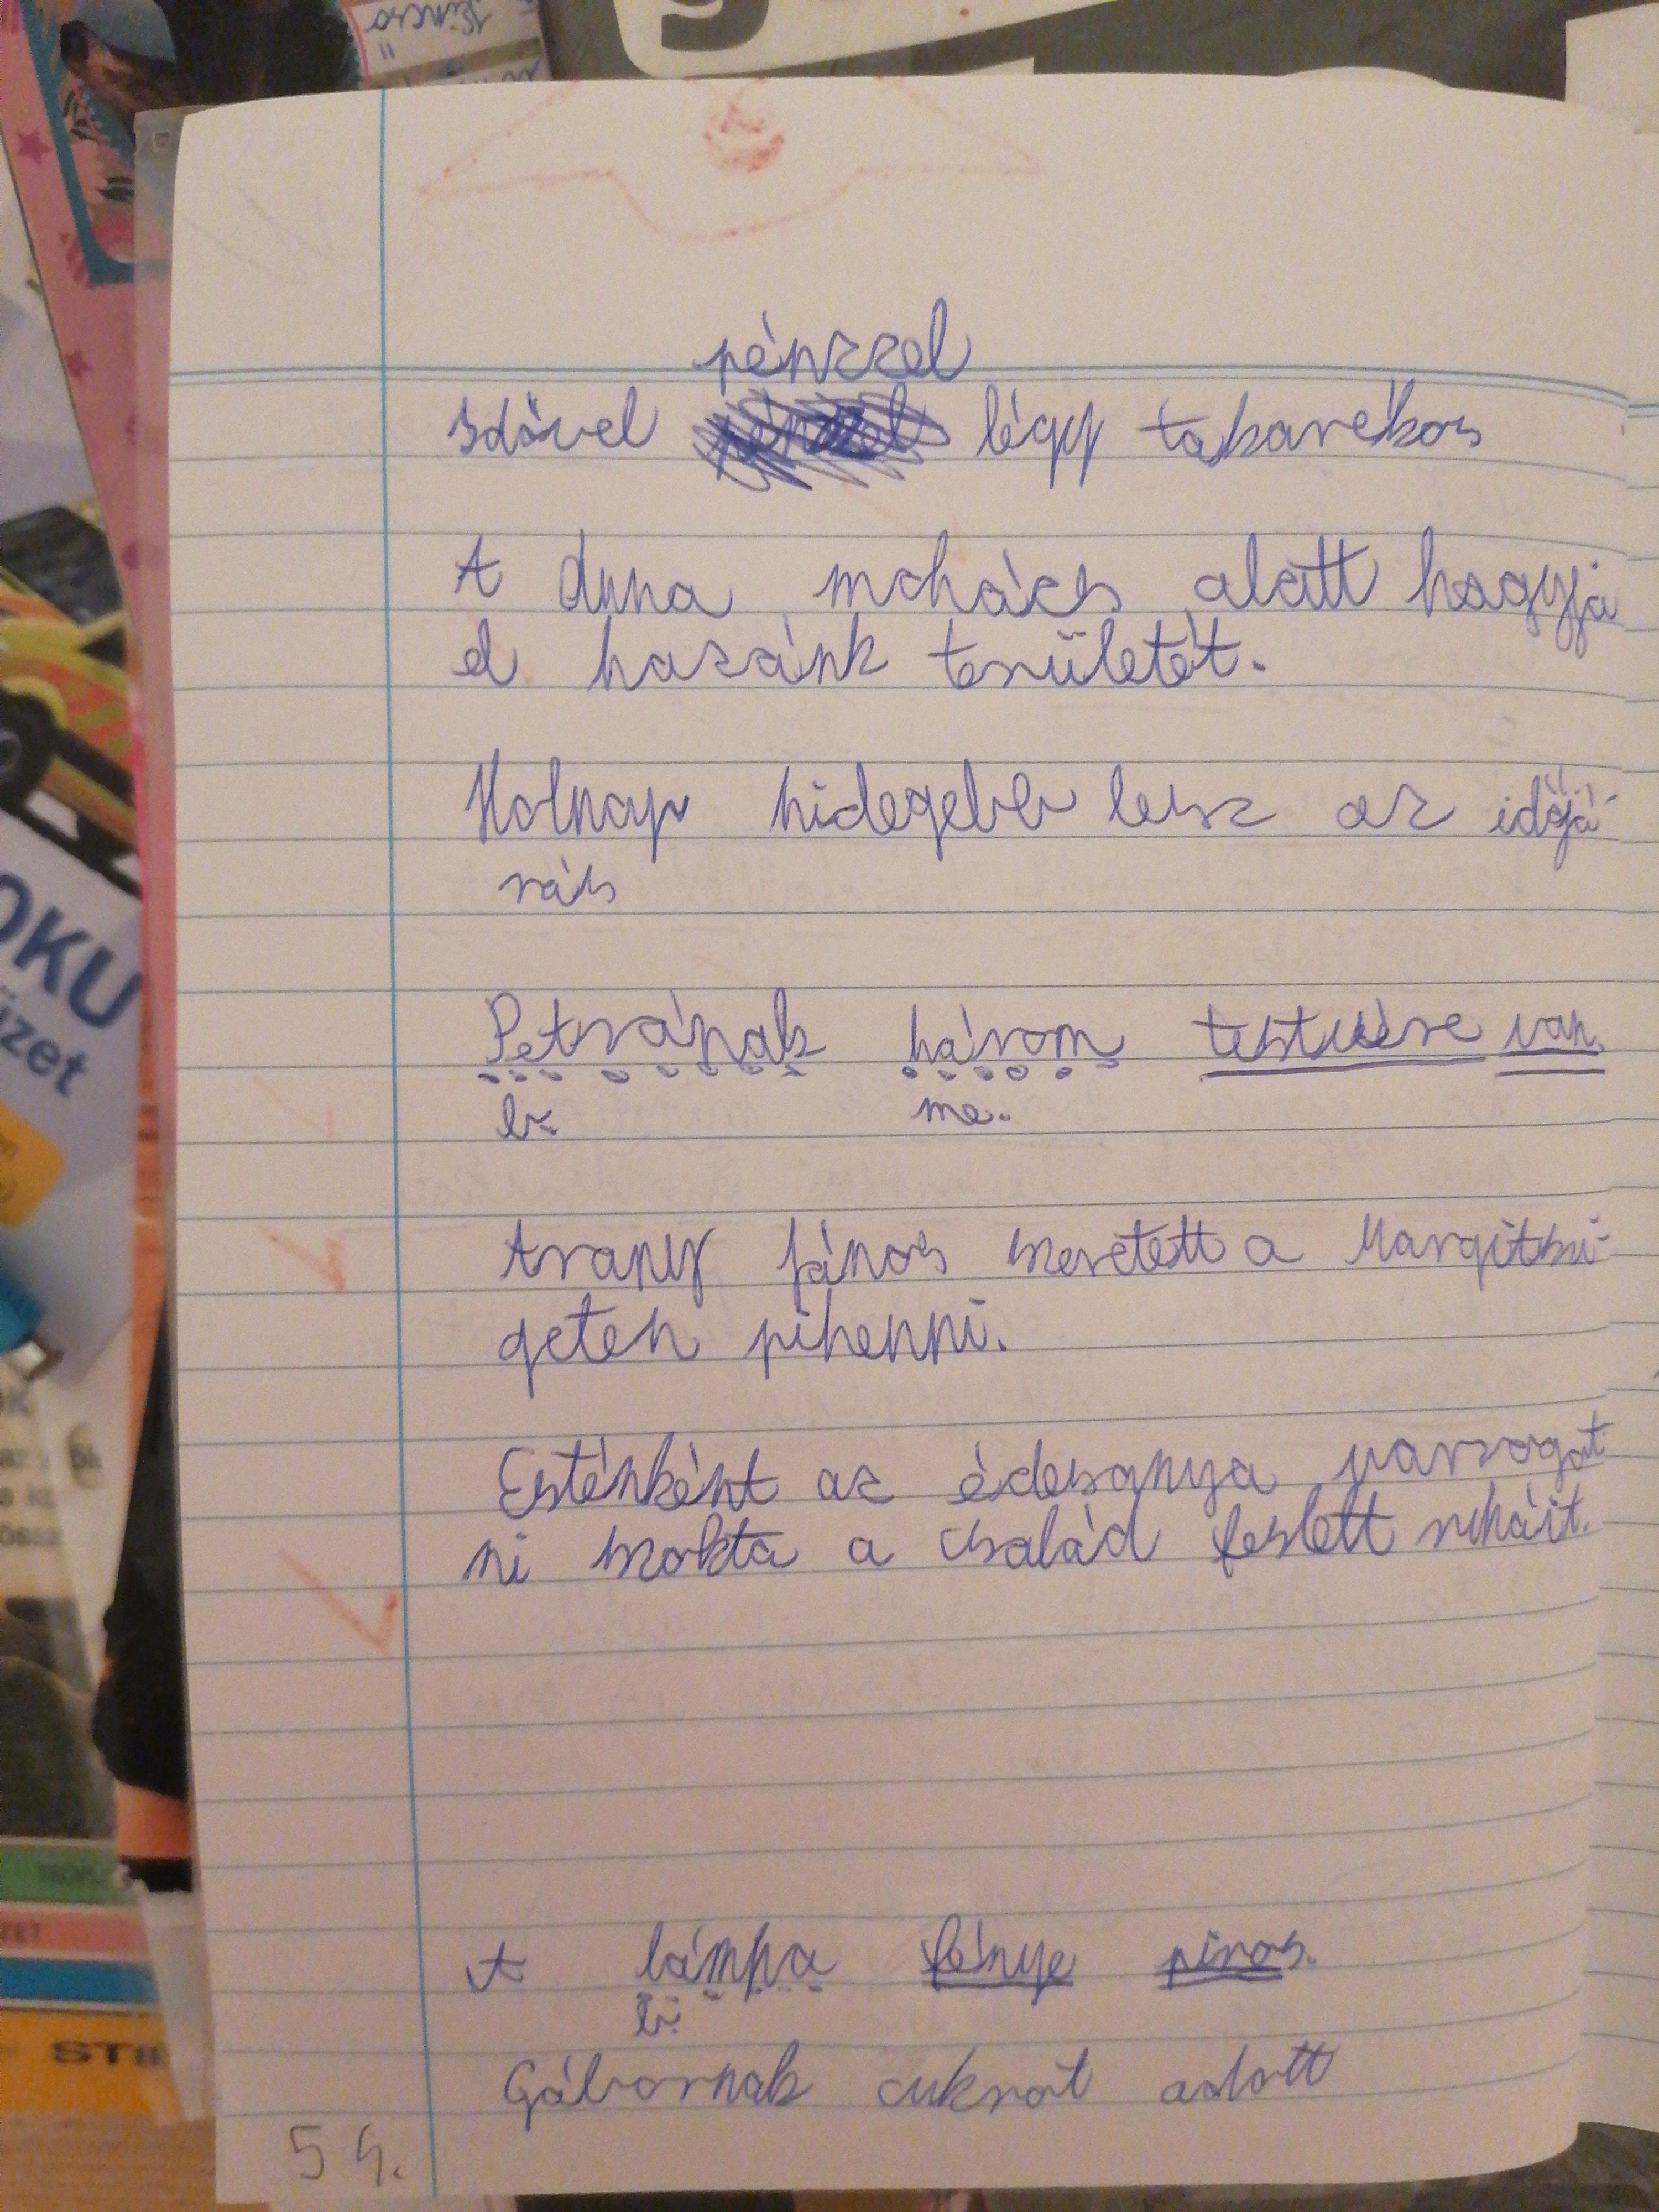 pénzzel
Idővel légy takarékos
A duna mohács alatt hagyja
el hazánk területét.
Holnap hidegebb lesz az időjá-
rás
Petrának három testvére van.
b. me.
Arany János szeretett a Margitszi-
geten pihenni.
Esténként az édesanya varrogat
ni szokta a család feslett ruháit.
A lámpa fénye piros.
b.
Gábornak cukrot adott
54.
OKU
üzet
STIE